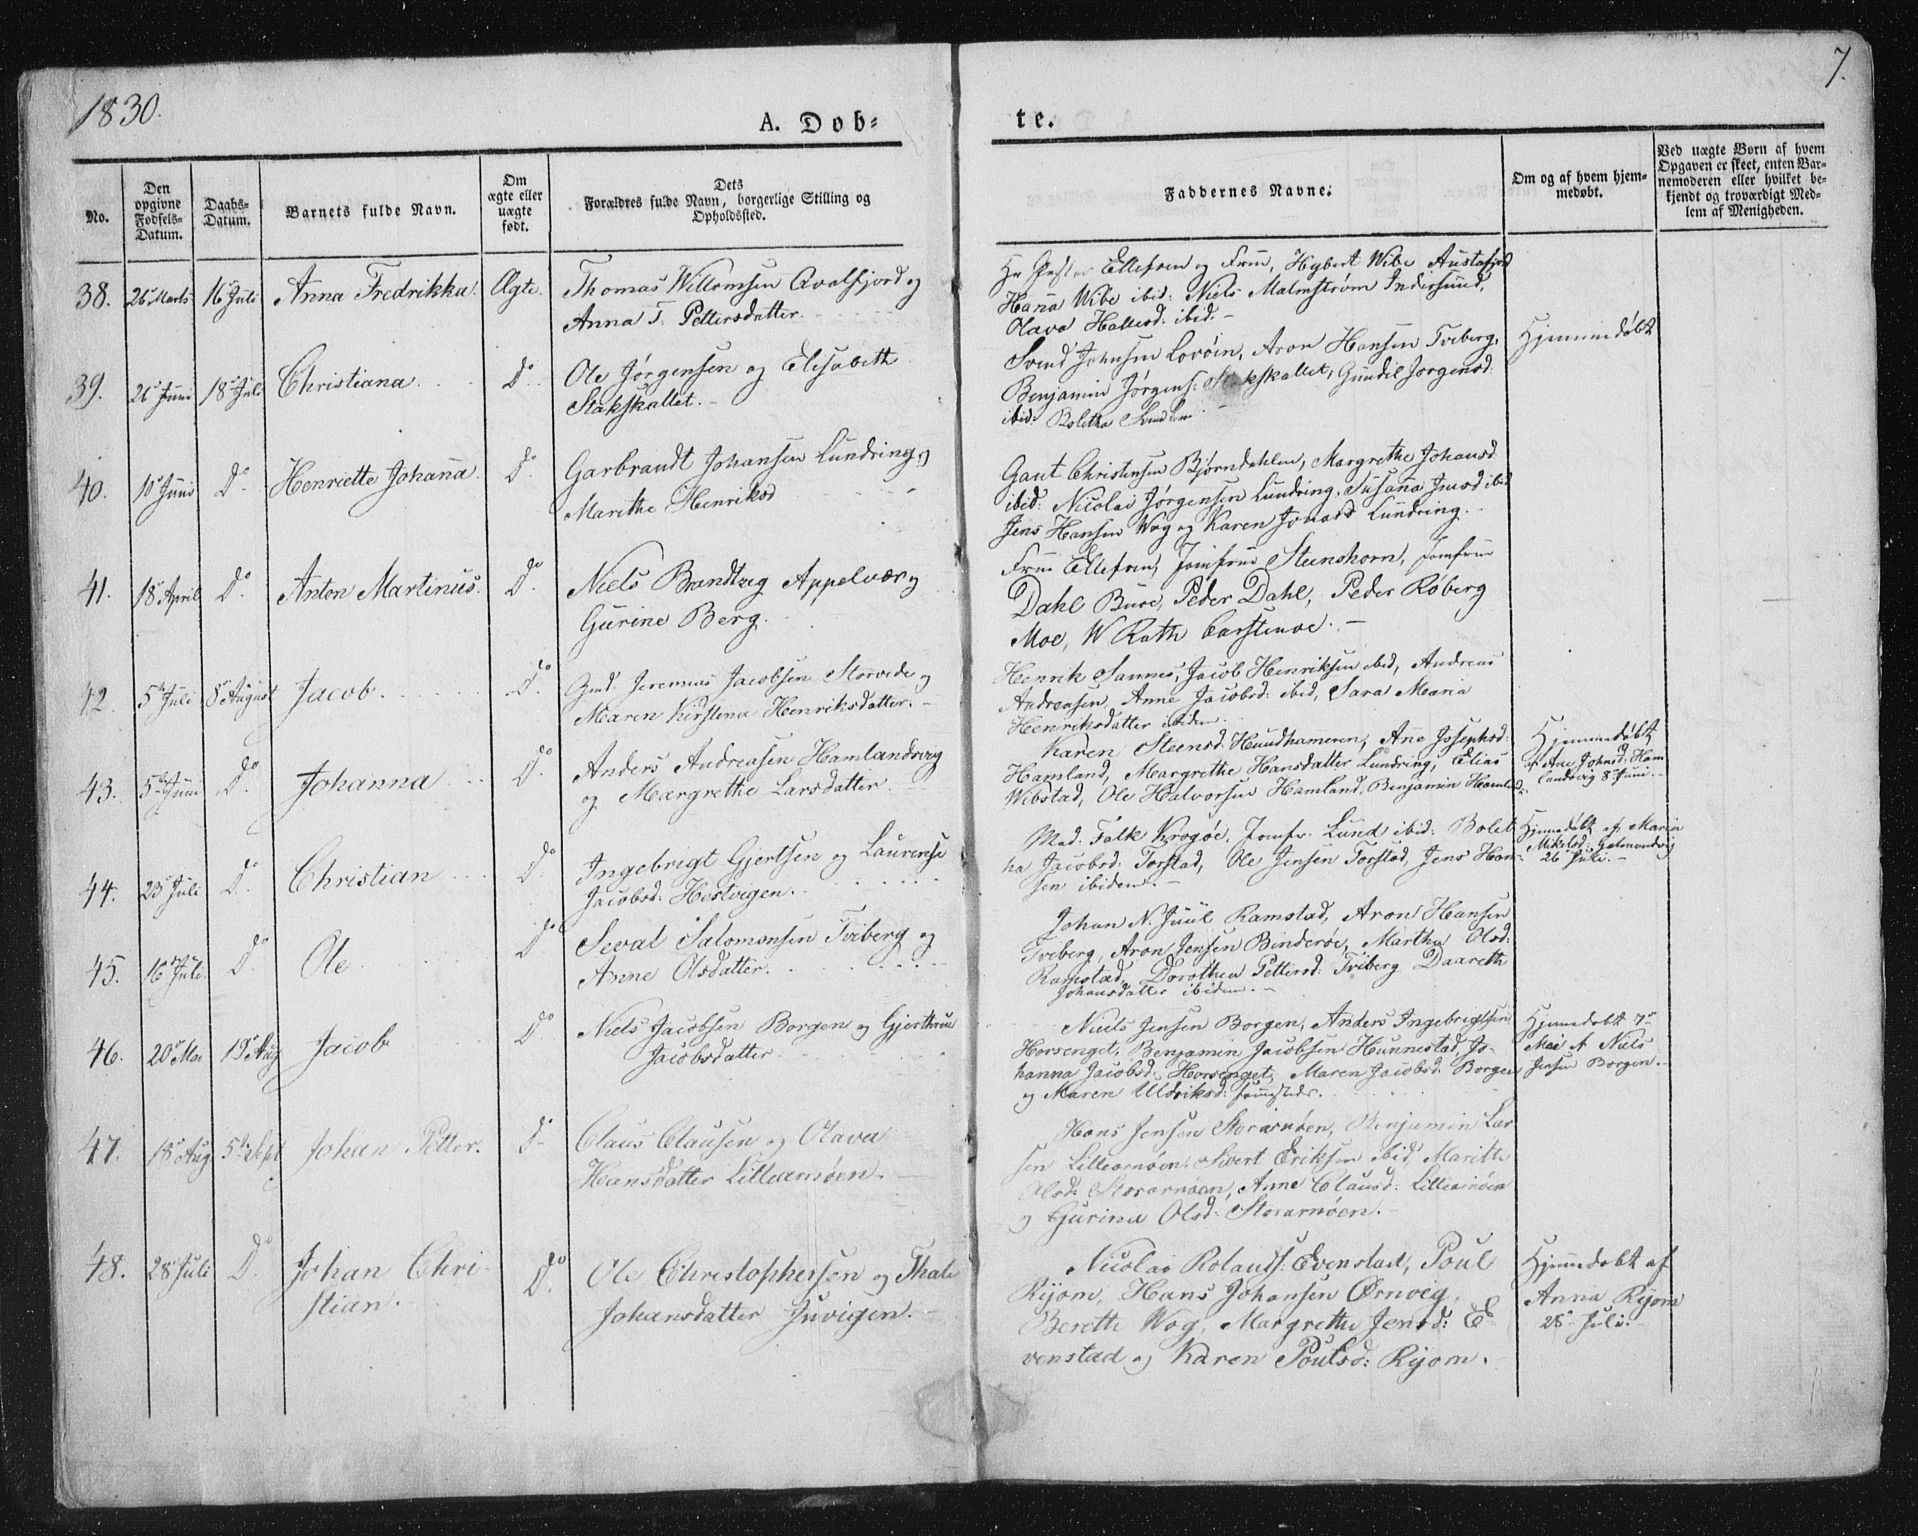 1830.
7.
A. Dob=
te.
No.
Den opgivne Fødsels-Datum.
Daabs-Datum.
Barnets fulde Navn.
Om ægte eller uægte født.
Dets Forældres fulde Navn, borgerlige Stilling og Opholdssted.
Faddernes Navne.
Om og af hvem hjem-
medøbt.
Ved uægte Børn af hvem
Opgaven er skeet, enten Bar-
nemoderen eller hvilket be-
kjendt og troværdigt Med-
lem af Menigheden.
38. 26 Marts 16 Juli Anna Fredrikka. Ægte. Thomas Willomsen Qvalfjord og
Anna T. Pettersdatter.
Ellefsen og Frue, Hybert Wibe Austafjord
Hana Wibe ibid: Niels Malmstrøm Indersund,
Olava Hallesd: ibid.
39. 26 Juni 18 Juli Christiana D Ole Jørgensen og Elisabeth
Stakskallet.
Svend Johnsen Lovøen, Aron Hansen Tviberg,
Benjamin Jørgens: Stakskallet, Gundil Jørgensd:
ibid: Boletha
Hjemmedøbt
40. 10 Juni D Henriette Johana D Garbrandt Johansen Lundring og
Marithe Henriksd
Gaut Christensen Bjørndahlen, Margrethe Johansd
ibid: Nicolai Jørgensen Lundring, Susana ibid
Jens Hansen Wog og Karen Lundring.
41. 18 April D Anton Martinus. D Niels Brandtzeg Appelvær og
Gurine Berg.
Frue Ellefsen, Jomfrue Steenshorn, Jomfrue
Dahl Buøe, Peder Dahl, Peder Røberg
Moe, W Rath Carstenøe.
42. 5 Juli 8 August Jacob D Jeremias Jacobsen Storvede og
Maren Kirstena Henriksdatter.
Henrik Samnes, Jacob Henriksen ibid, Andreas
Andreasen, Anne Jacobsd: ibid, Sara Maria
Henriksdatter ibidem.
43. 5 Juni D Johanna D Anders Andreasen Hamlandsvig
og Margrethe Larsdatter
Karen Steensd: Hundhameren, Ane Josephsd:
Hamland, Margrethe Hansdatter Lundring, Elias
Wibstad, Ole Halvorsen Hamland, Benjamin Hamland
Hjemmedøbt
af Ane Johnsd: Ham
landsvig 8 Juni
44. 23 Juli D Christian D Ingebrigt Gjertsen og Laurense
Jacobsd: Hestvigen.
Mad. Falk Krogøe, Jomfr. Lund ibid: Bolet
ha Jacobsd: Torstad, Ole Jensen Torstad, Jens Han-
sen ibidem.
Hjemmedøbt af Maria
26 Juli.
45. 16 Juli D Ole D Seval Salomonsen Tviberg og
Anne Olsdatter.
Johan N. Juul Ramstad, Aron Hansen
Tviberg, Aron Jensen Binderøe, Martha Olsd:
Ramstad, Dorothea Pettersd: Tviberg Daareth
Johansdatter ibidem.
46. 20 Mai 19 Aug Jacob D Niels Jacobsen Borgen og Gjerthrue
Jacobsdatter
Niels Jensen Borgen, Anders Ingebrigtsen
Horsenget, Benjamin Jacobsen Hunnestad, Jo-
hanna Jacobsd: Horsenget, Maren Jacobsd: Borgen
og Maren Uldriksd: sammesteds.
Hjemmedøbt
Mai af Niels
Jensen Borgen.
47. 18 Aug 5 Sept Johan Petter. D Claus Clausen og Olava
Hansdatter Lillearnøen.
Hans Jensen Storarnøen, Benjamin Lar
sen Lillearnøen, Sivert Eriksen ibid, Marithe
Olsd: Storarnøen, Anne Clausd: Lillearnøen
og Gurina Olsd: Storarnøen.
48. 28 Juli D. Johan Chri
stian. D Ole Christophersen og Thale
Johansdatter Juvigen.
Nicolai Rolands: Evenstad, Poul
Ryom, Hans Johansen Ørnvig,
Berette Wog, Margrethe Jensd: E-
venstad og Karen Poulsd: Ryom.
Hjemmedøbt af
Anna Ryom
28 Juli.